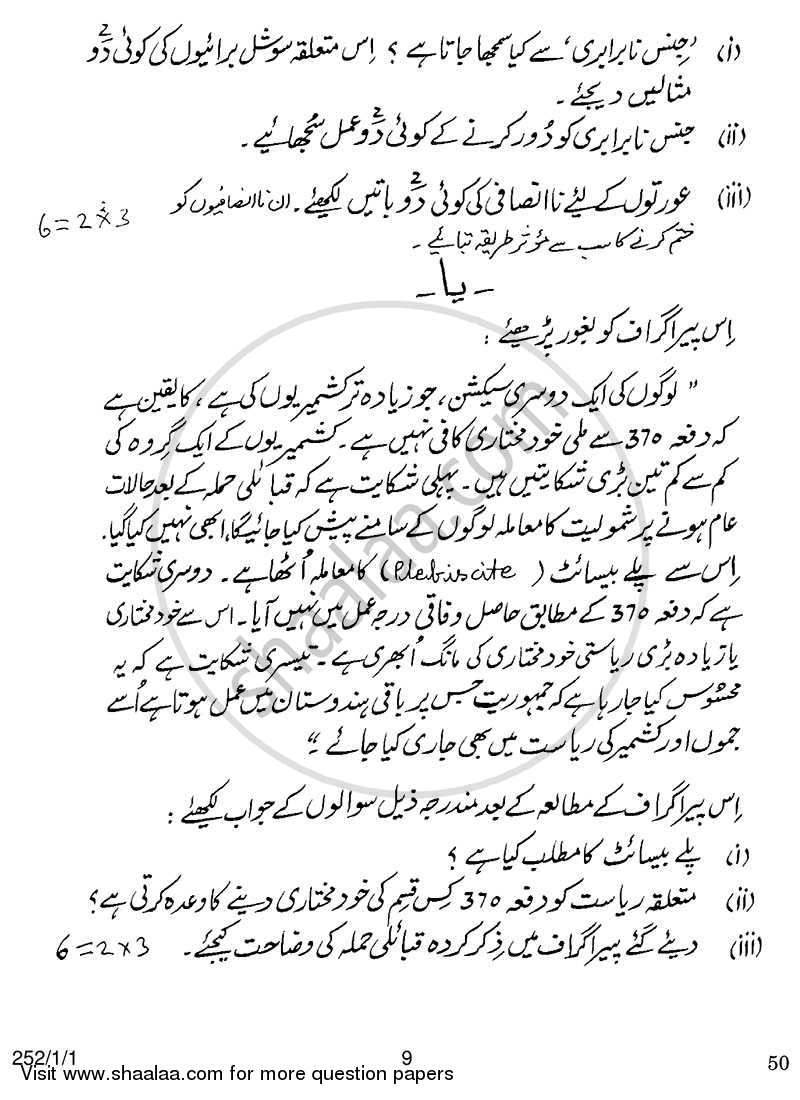 (i) ’جنس نابرابری‘ سے کیا سمجھا جاتا ہے ؟ اِس متعلقہ سوشل برائیوں کی کوئی دو 2
مثالیں دیجئے ۔
(ii) جنس نابرابری کو دُور کرنے کے کوئی دو 2 عمل سُجھائیے ۔
(iii) عورتوں کے لئے نا انصافی کی کوئی دو 2 باتیں لکھئے ۔ ان نا انصافیوں کو
6=2×3
ختم کرنے کا سب سے مؤثر طریقہ بتائیے ۔
- یا -
اِس پیراگراف کو بغور پڑھیئے :
” لوگوں کی ایک دوسری سیکشن ، جو زیادہ تر کشمیریوں کی ہے ، کا یقین ہے
کہ دفعہ 370 سے ملی خود مختاری کافی نہیں ہے ۔ کشمیریوں کے ایک گروہ کی
کم سے کم تین بڑی شکایتیں ہیں ۔ پہلی شکایت ہے کہ قبائلی حملہ کے بعد حالات
عام ہونے پر شمولیت کا معاملہ لوگوں کے سامنے پیش کیا جائیگا، ابھی نہیں کیا گیا.
اِس سے پلے بیسائٹ (Plebiscite) کا معاملہ اُٹھا ہے ۔ دوسری شکایت
ہے کہ دفعہ 370 کے مطابق حاصل وفاقی درجہ عمل میں نہیں آیا ۔ اس سے خود مختاری
یا زیادہ بڑی ریاستی خود مختاری کی مانگ اُبھری ہے ۔ تیسری شکایت ہے کہ یہ
محسُوس کیا جا رہا ہے کہ جمہوریت جس پر باقی ہندوستان میں عمل ہوتا ہے اُسے
جموں اور کشمیر کی ریاست میں بھی جاری کیا جائے ۔“
اِس پیراگراف کے مطالعہ کے بعد مندرجہ ذیل سوالوں کے جواب لکھئے :
(i) پلے بیسائٹ کا مطلب کیا ہے ؟
(ii) متعلقہ ریاست کو دفعہ 370 کِس قسم کی خود مختاری دینے کا وعدہ کرتی ہے ؟
(iii) دیئے گئے پیراگراف میں ذِکر کردہ قبائلی حملہ کی وضاحت کیجئے ۔ 6=2×3
shaalaa.com
252/1/1 9 50
Visit www.shaalaa.com for more question papers